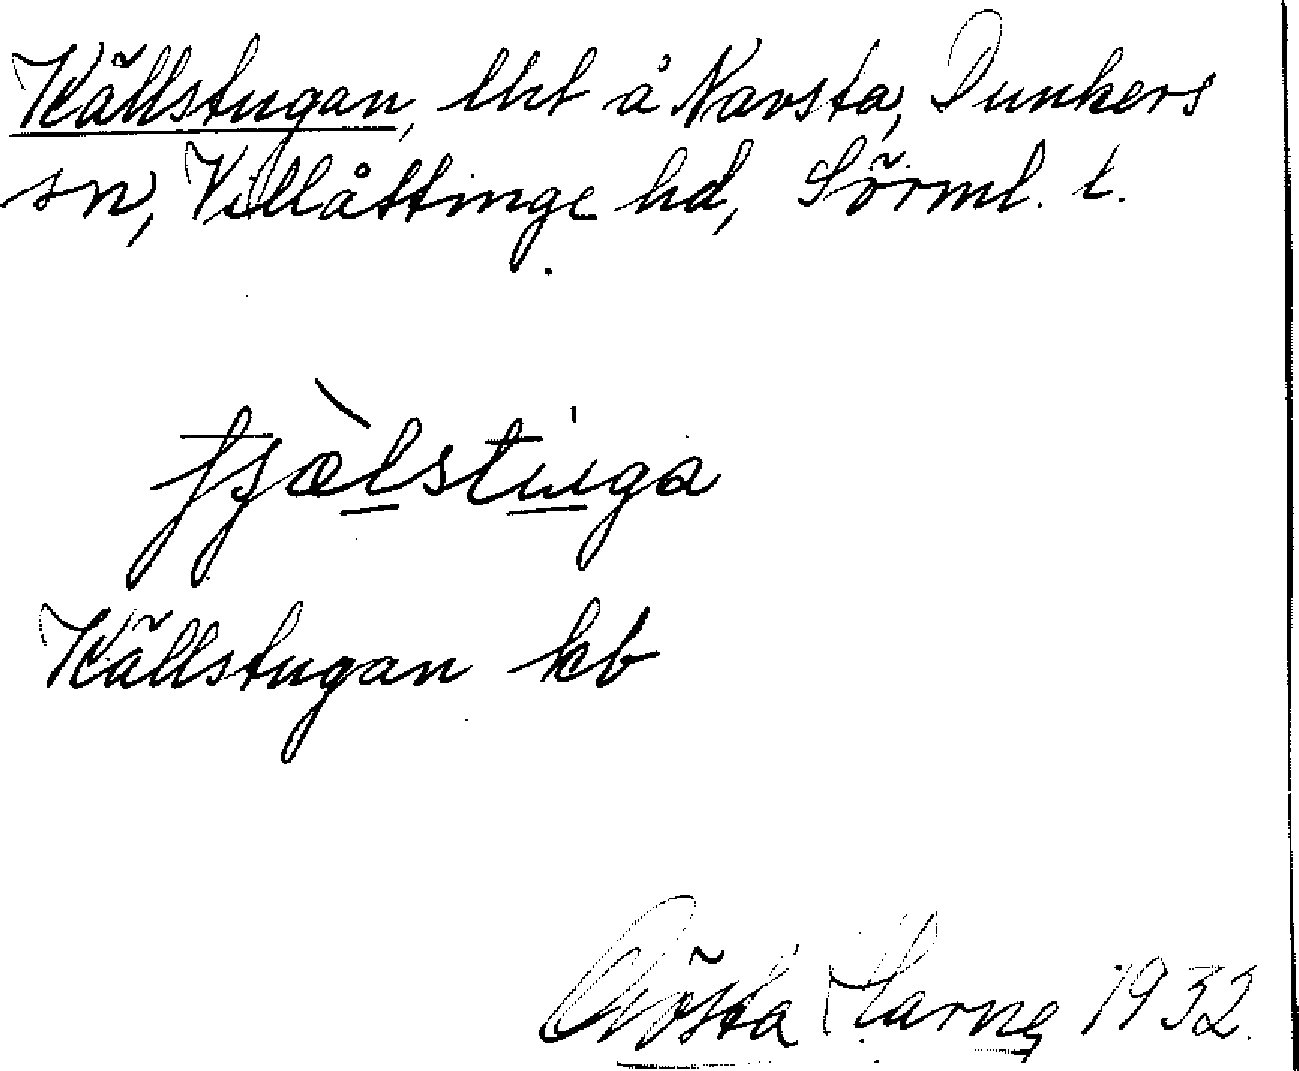 Källstugan, lht å Navsta, Dunkers
sn, Villåttinge hd, Sörml. l.
Källstugan kb
Gösta Harne 1932.